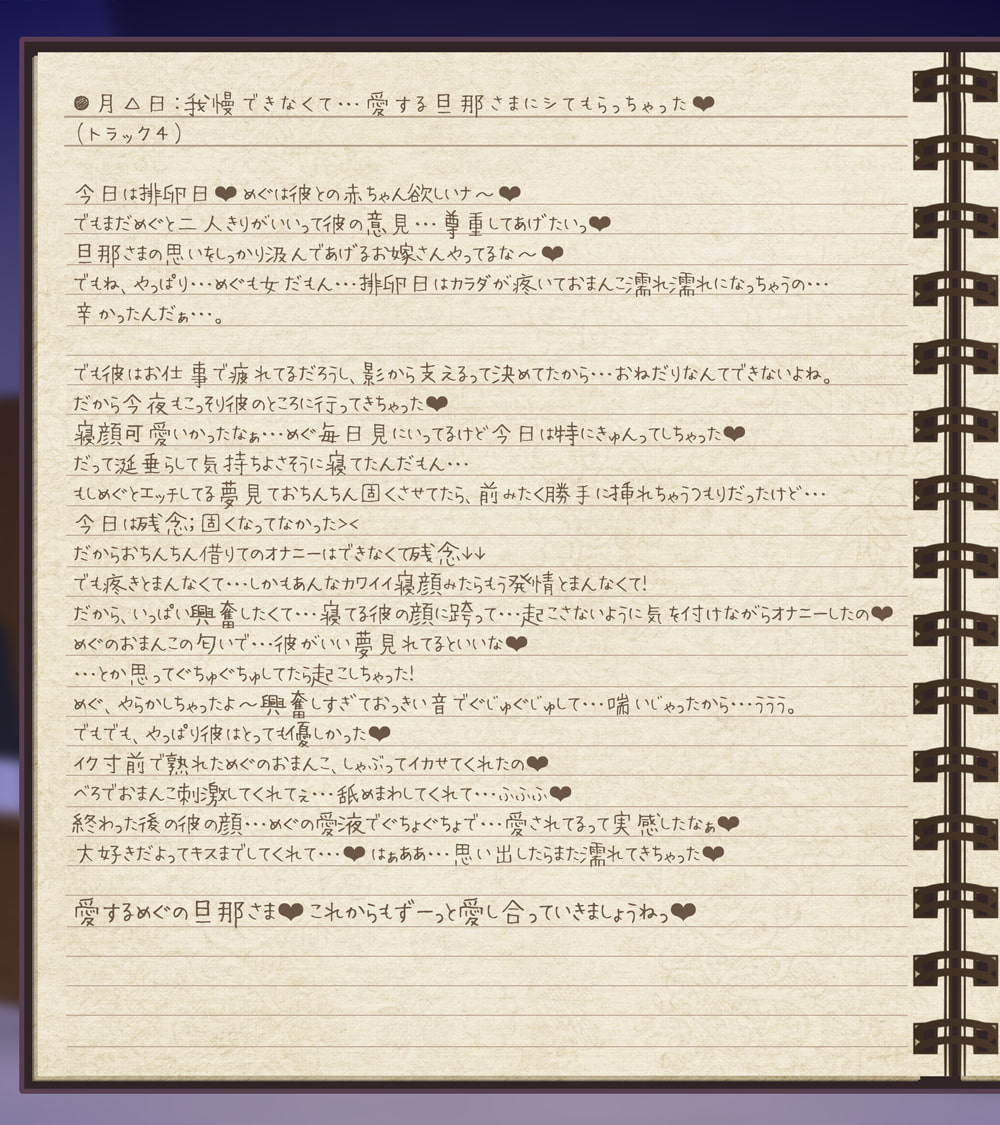 ●月△日：我慢できなくて…愛する旦那さまにシてもらっちゃった♥
（トラック４）
今日は排卵日♥めぐは彼との赤ちゃん欲しいナ～♥
でもまだめぐと二人きりがいいって彼の意見…尊重してあげたいっ♥
旦那さまの思いをしっかり汲んであげるお嫁さんやってるな～♥
でもね、やっぱり…めぐも女だもん…排卵日はカラダが疼いておまんこ濡れ濡れになっちゃうの…
辛かったんだぁ…。
でも彼はお仕事で疲れてるだろうし、影から支えるって決めてたから…おねだりなんてできないよね。
だから今夜もこっそり彼のところに行ってきちゃった♥
寝顔可愛いかったなぁ…めぐ毎日見にいってるけど今日は特にきゅんってしちゃった♥
だって涎垂らして気持ちよさそうに寝てたんだもん…
もしめぐとエッチしてる夢見ておちんちん固くさせてたら、前みたく勝手に挿れちゃうつもりだったけど…
今日は残念；固くなってなかった><
だからおちんちん借りてのオナニーはできなくて残念↓↓
でも疼きとまんなくて…しかもあんなカワイイ寝顔みたらもう発情とまんなくて！
だから、いっぱい興奮したくて…寝てる彼の顔に跨って…起こさないように気を付けながらオナニーしたの♥
めぐのおまんこの匂いで…彼がいい夢見れてるといいな♥
…とか思ってぐちゅぐちゅしてたら起こしちゃった！
めぐ、やらかしちゃったよ～興奮しすぎておっきい音でぐじゅぐじゅして…喘いじゃったから…ううう。
でもでも、やっぱり彼はとっても優しかった♥
イク寸前で熟れためぐのおまんこ、しゃぶってイカせてくれたの♥
べろでおまんこ刺激してくれてぇ…舐めまわしてくれて…ふふふ♥
終わった後の彼の顔…めぐの愛液でぐちょぐちょで…愛されてるって実感したなぁ♥
大好きだよってキスまでしてくれて…♥はぁああ…思い出したらまた濡れてきちゃった♥
愛するめぐの旦那さま♥これからもずーっと愛し合っていきましょうねっ♥